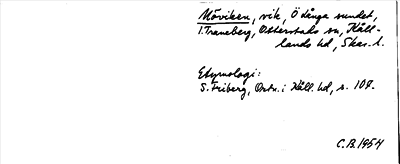 Möviken, vik, Ö Långa sundet,
I. Traneberg, Otterstads sn, Kåll-
lands hd, Skar. l.
Etymologi:
S. Friberg, Ortn. i Kåll. hd, s. 107.
C.B. 1954